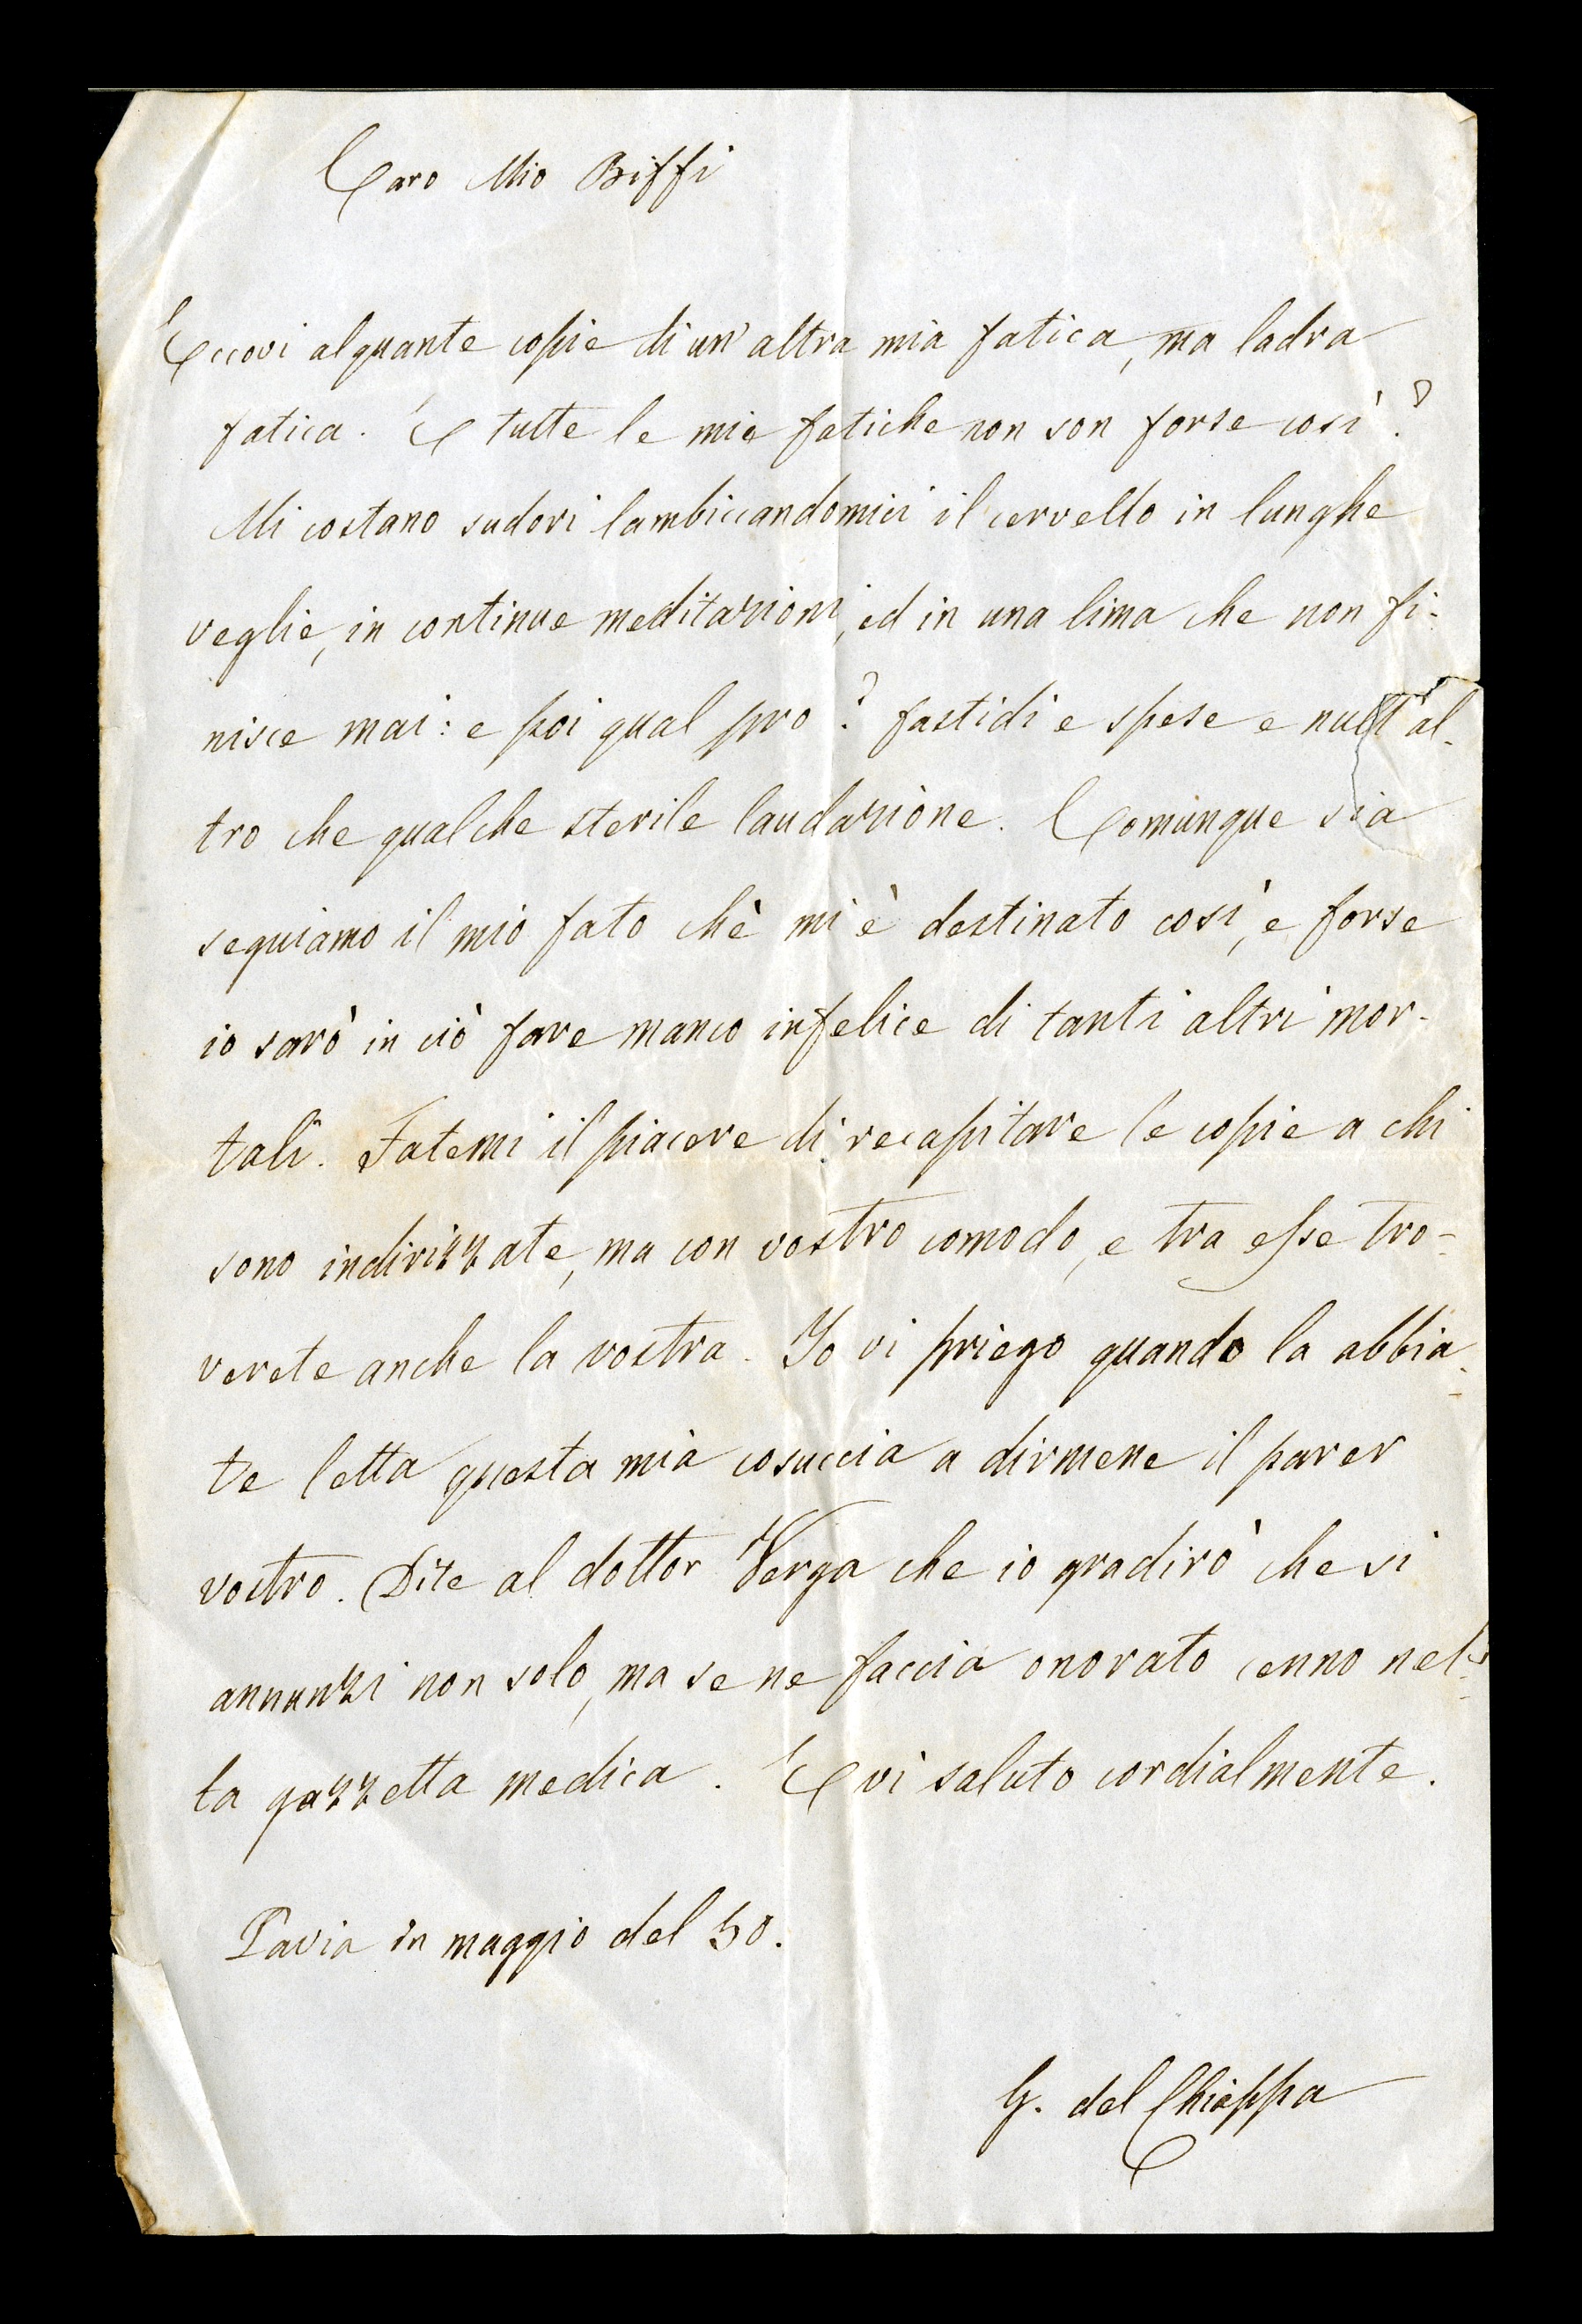 Caro Mio Biffi
Eccovi alquante copie di un' altra mia fatica, ma ladra
fatica. E tutte le mie fatiche non son forse così?
Mi costano sudori lambiccandomici il cervello in lunghe
veglie, in continue meditazioni, ed in una lima che non fi-
nisce mai: e poi qual pro? fastidi e spese e null' al-
tro che qualche sterile laudazione. Comunque sia
seguiamo il mio fato chè mi è destinato così, e forse
io sarò in ciò fare manco infelice di tanti altri mor-
tali. Fatemi il piacere di recapitare le copie a chi
sono indirizzate, ma con vostro comodo, e tra esse tro=
verete anche la vostra. Io vi priego quando la abbia=
te letta questa mia cosuccia a dirmene il parer
vostro. Dite al dottor Verga che io gradirò che si
annunzi non solo, ma se ne faccia onorato cenno nel=
la gazzetta medica. E vi saluto cordialmente.
Pavia in maggio del 50.
G. del Chiappa